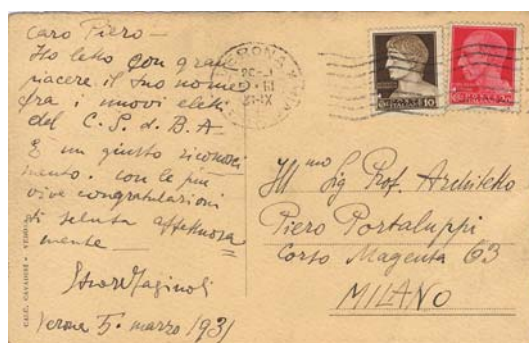 Caro Piero —
Ho letto con gran
piacere il tuo nome
fra i nuovi eletti
del C. S. d. B. A
È un giusto riconosci
mento. con le più
vive congratulazioni
ti saluta affettuosa
mente —
Verona 5. marzo 1931
Ill mo Sig Prof. Architetto
Piero Portaluppi
Corso Magenta 63
MILANO
VERONA
10